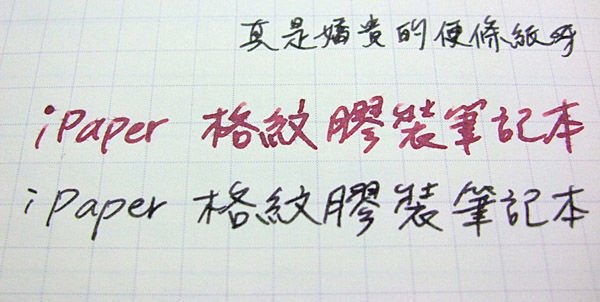 真是嬌貴的便條紙呀
iPaper 格紋膠裝筆記本
iPaper 格紋膠裝筆記本